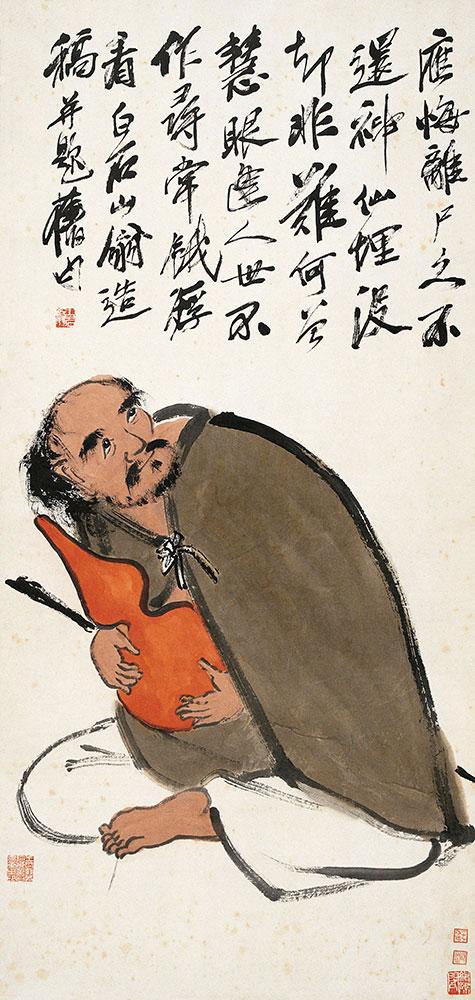 應悔離尸久不
還神仙埋没
却非難何曾
慧眼逢人世不
作尋常餓殍
看白石山翁造
稿并題舊句